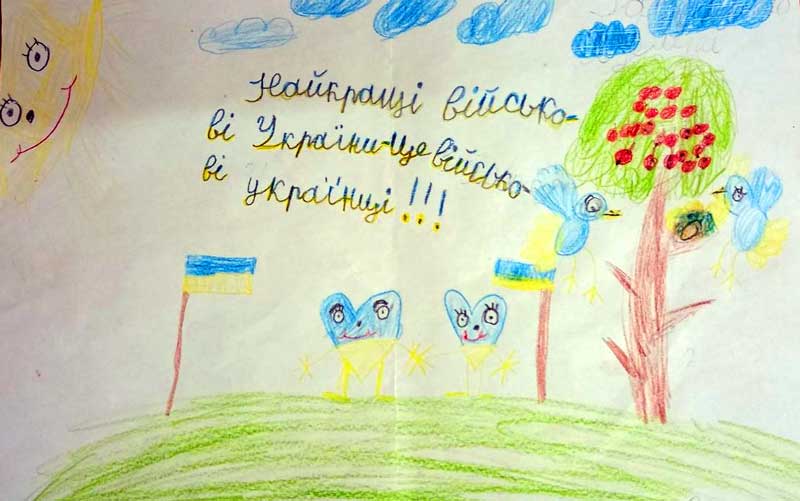 Найкращі військо-
ві України-це військо-
ві українці!!!